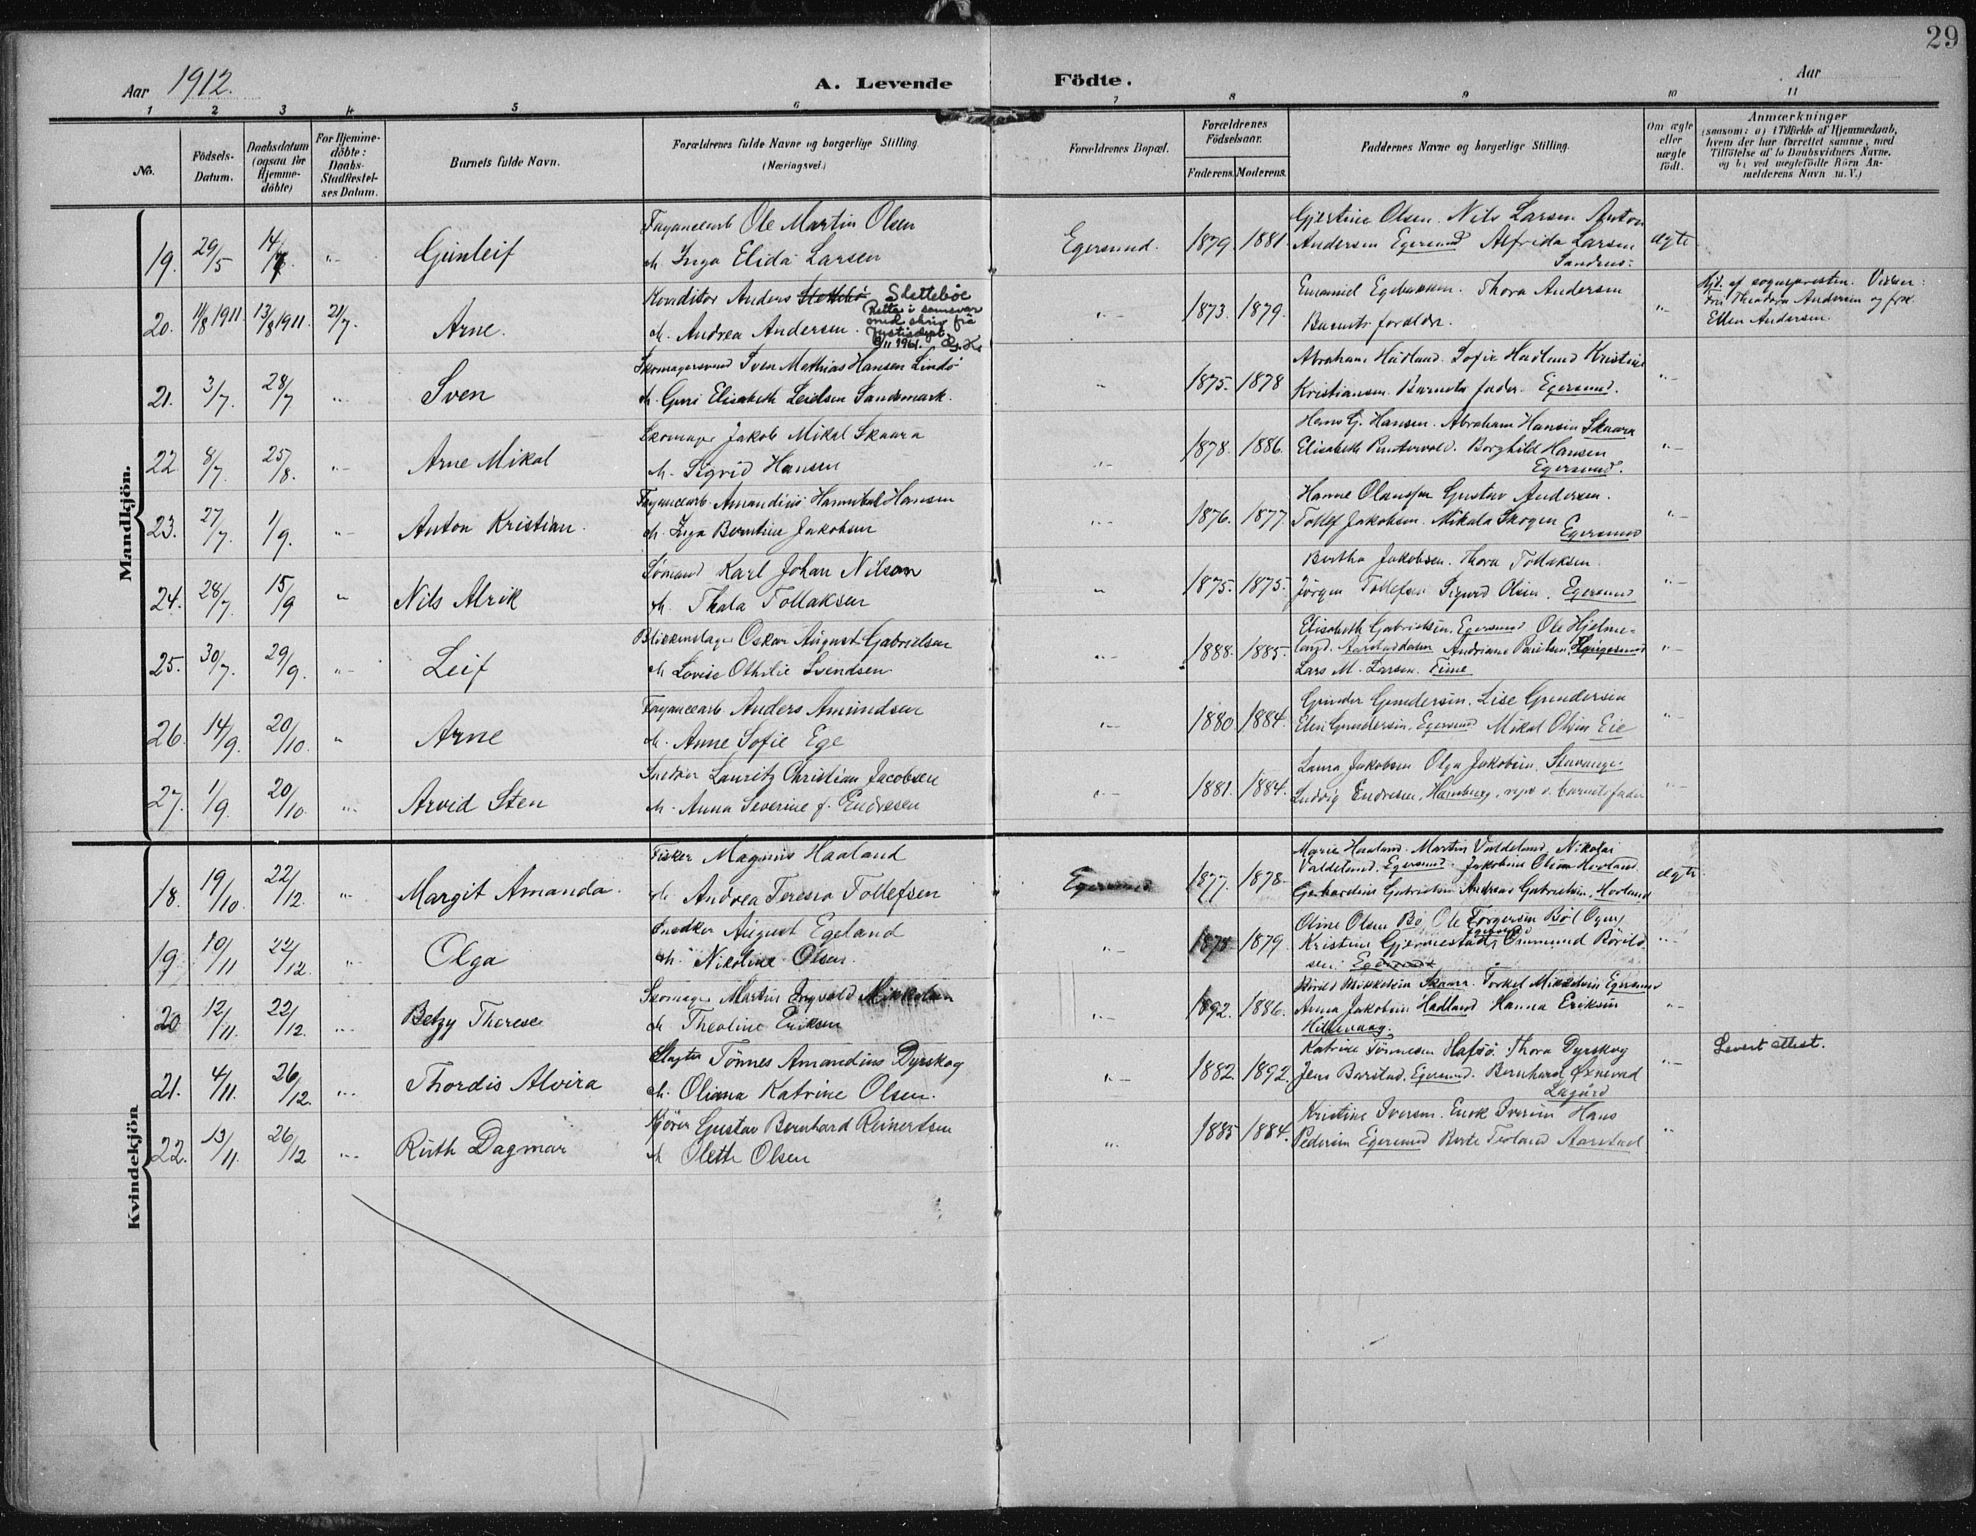 29
Aar 1912.
A. Levende Födte.
Aar
1 2 3 4 5 6 7 8 9 10 11
No.
Födsels-Datum.
Daabsdatum (ogsaa for Hjemme-döbte)
For Hjemme-döbte: Daabs-Stadfæstel-ses Datum.
Barnets fulde Navn.
Forældrenes fulde Navne og borgerlige Stilling (Næringsvei.)
Forældrenes Bopæl.
Forældrenes Födselsaar.
Faderens. Moderens.
Faddernes Navne og borgerlige Stilling.
Om ægte eller uægte födt.
Anmærkninger
(saasom: a) i Tilfælde af Hjemmedaab, hvem der har forrettet samme, med Tilföielse af to Daabsvidners Navne. og b) ved uægtefödte Börn An-melderens Navn m. V.)
Mandkjön.
Fayancearb Ole Martin Olsen
Gjertine Olsen. Nils Larsen Anton
19. 29/5 14/7 "- Gunleif
M. Inga Elida Larsen
Egersund. 1879. 1881 Andersen Egersund Alfrida Larsen Sandnes: ægte
Konditor Anders Slettebø Slettebøe
Rettet i samsvar med skriv frå Justisdept 8/11 1961.
Emanuel Egebakken. Thora Andersen
Hjd. af sognepresten. Vidner: Fru Theodora Andersen og frk. Ellen Andersen.
20. 11/8 1911. 13/8 1911. 21/7. Arne.
M. Andrea Andersen.
"- 1873. 1879. Barnets forældre. "
Skomagersvend Sven Mathias Hansen Lindø
Abraham Hadland. Sofie Hadland Kristine
21. 3/7. 28/7 "- Sven
M. Guri Elisabeth Leidsen Sandsmark.
" 1875. 1878 Kristiansen. Barnets fader. Egersund. "-
Skomager Jakob Mikal Skaara
Hans G. Hansen. Abraham Hansen Skaara
22 8/7. 25/8. "- Arne Mikal
M. Sigrid Hansen
"- 1878. 1886. Elisabeth Puntervold. Borghild Hansen Egersund. "-
Fayancearb. Amandius Hannibal Hansen
Hanne Olausen Gustav Andersen.
23. 27/7. 1/9. "- Anton Kristian.
M. Inga Berntine Jakobsen
"- 1876. 1877. Tollef Jakobsen. Mikala Skogen Egersund "-
Sømand Karl Johan Nilsen
Bertha Jakobsen. Thora Tollaksen.
24. 28/7. 15/9 " Nils Alrik
M. Thala Tollaksen
" 1875. 1875. Jörgen Tollefsen Sigurd Olsen. Egersund "-
Blikkenslager Oskar August Gabrielsen
Elisabeth Gabrielsen. Egersund Ole Hjelme-
25. 30/7. 29/9. "- Leif
M. Lovise Othilie Svendsen
"- 1888. 1885. land. Aarstaddalen Andriane Paulsen
Lars M. Larsen. Time "-
Fayancearb. Anders Amundsen
Gunder Gundersen. Lise Gundersen
26. 14/9. 20/10. " Arne
M. Anne Sofie Ege
"- 1880 1884. Elen Gundersen. Egersund Mikal Olsen Eie "-
Snedker Lauritz Christian Jacobsen
Laura Jakobsen Olga Jakobsen. Stavanger
27. 1/9. 20/10. "- Arvid Sten
M. Anna Severine f. Endresen
"- 1881. 1884. Ludvig Endresen, Hamburg, repr. v. barnets fader "-
Kvindekjön
Fisker Magnus Haaland
Marie Haaland. Martin Valdeland, Nikolai
Valdeland, Egersund. Jakobine Olsen Hovland
18. 19/10. 22/12. "- Margit Amanda.
M. Andrea Teresia Tollefsen
Egersund 1877. 1878 Gerhardine Gabrielsen Andreas Gabrielsen, Hovland ægte
Snedker August Egeland
Oline Olsen Bø. Ole Torgersen Bøl Ogna
19 10/11 22/12. "- Olga
M. Nikoline Olsen.
"- 1875 1879. Kristine Gjermestad, Ommund
sen. Egersund "-
Skomager Martin Ingvald Mikkelsen
Skaara. Torkel Mikkelsen Egersund
20 12/11. 22/12. "- Betzy Therese
M. Theoline Eriksen
"- 1892. 1886. Anna Jakobsen Hadland Hanna Eriksen "-
Hillevaag.
Slagter Tönnes Amandius Dyrskog
Katrine Tönnesen Hafsö. Thora Dyrskog
Levert attest.
21. 4/11. 26/12. "- Thordis Alvira
M. Oliana Katrine Olsen.
"- 1882. 1892. Jens Barstad, Egersund. Bernhard Øxnevad Lagård "-
Kjörer Gustav Bernhard Reinertsen
Kristine Iversen. Enok Iversen Hans
22. 13/11. 26/12 "- Ruth Dagmar
M Olette Olsen
"- 1885 1884. Pedersen Egersund Berte Tesland Aarstad "-